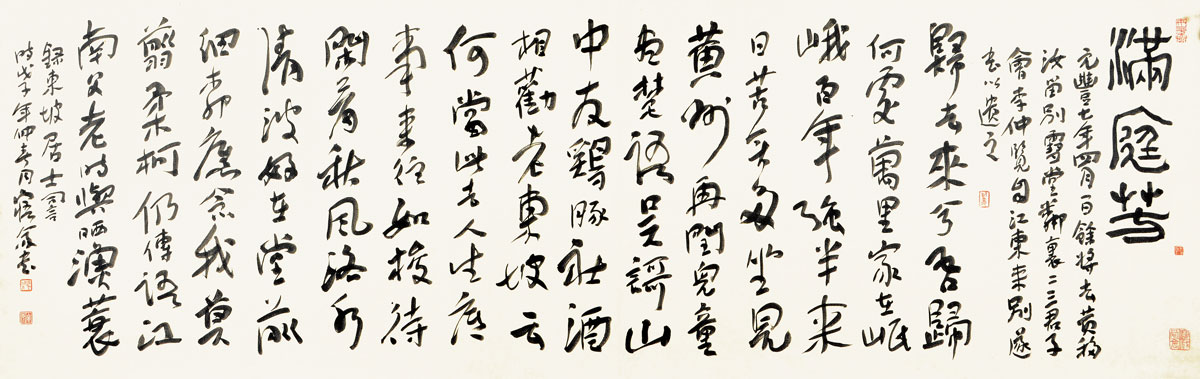 滿庭芳
元豐七年四月一日餘將去黄移
汝留別雪堂鄰裏二三君子
會李仲覽自江東來別遂
書以遺之
歸去來兮吾歸
何處萬里家在岷
峨百年強半來
日苦無多坐見
黄州再閏兒童
盡楚語吳謌山
中友鷄豚社酒
相勸老東坡云
何當此去人生底
事來往如梭待
閑看秋風洛水
清波好在堂前
細柳應念我莫
翦柔柯仍傳語江
南父老時與曬漁蓑
錄東坡居士詞
時戊子年仲春月